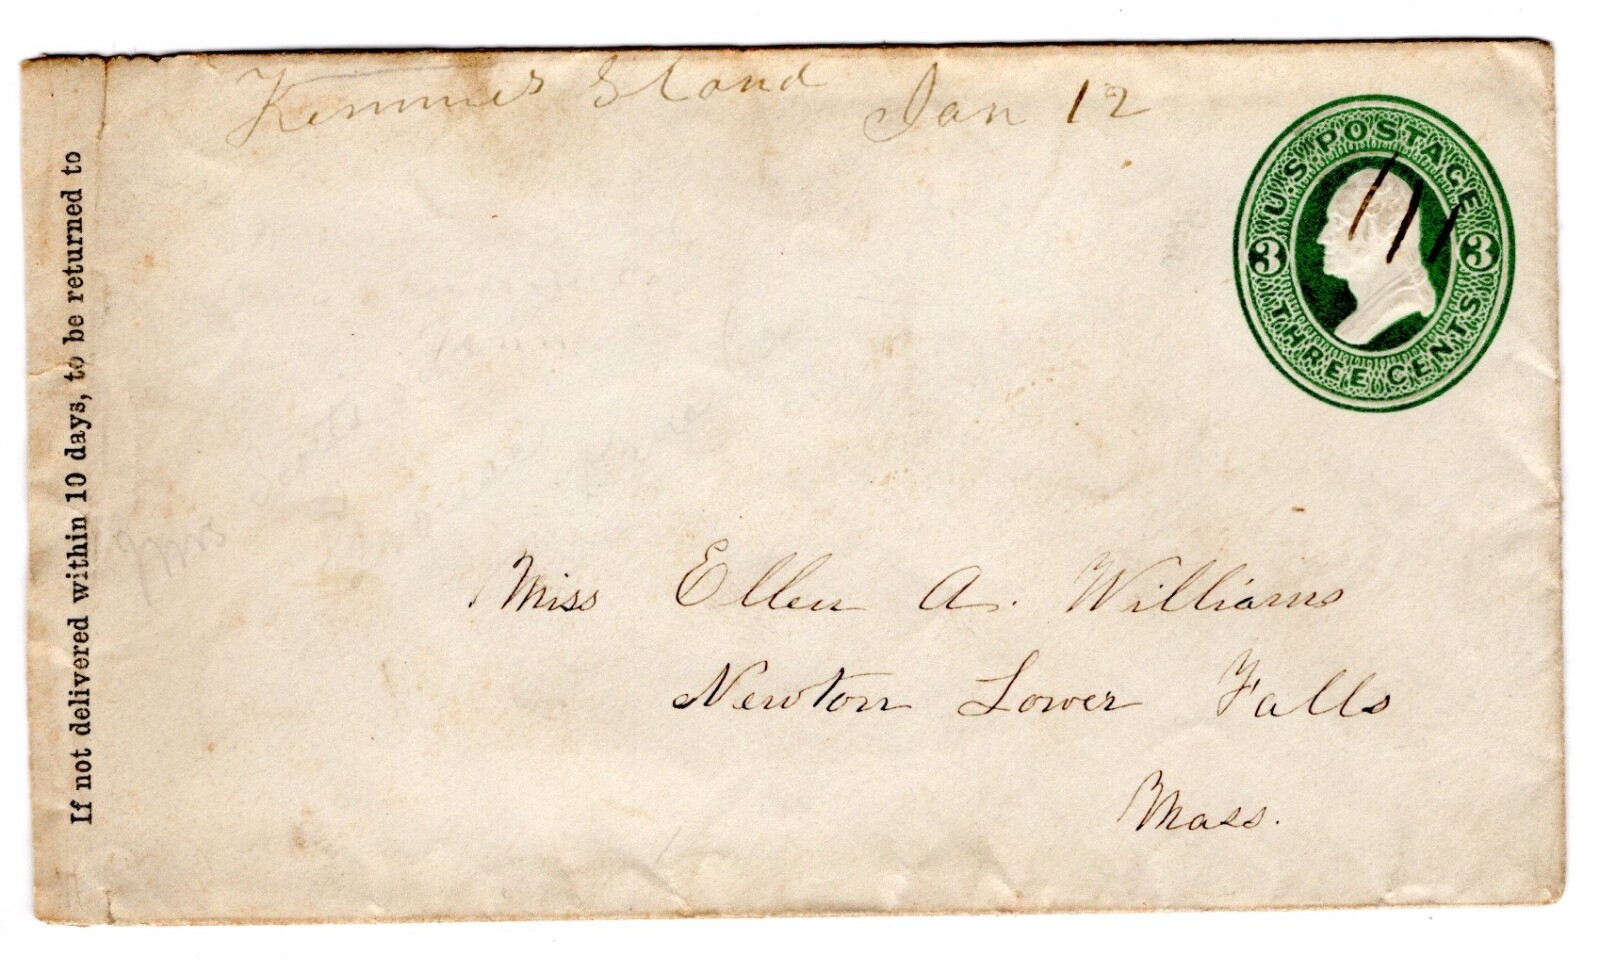 Island Jan 12
U.S. POSTAGE
3 3
THREE CENTS
If not delivered within 10 days, to be returned to
Mrs Scotts
Miss Ellen A. Williams
Newton Lower Falls
Mass.